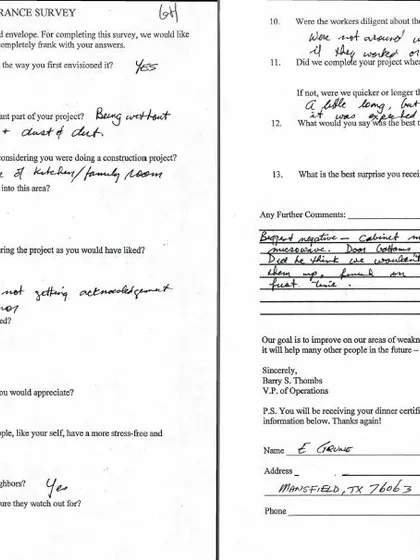 RANCE SURVEY
GH
d envelope. For completing this survey, we would like
completely frank with your answers.
the way you first envisioned it? YES
ant part of your project? Being without
+ dust & dirt.
considering you were doing a construction project?
e of kitchen/family room
into this area?
ring the project as you would have liked?
not getting acknowledgement
ed?
you would appreciate?
ple, like your self, have a more stress-free and
ghbors? Yes
ure they watch out for?
10. Were the workers diligent about the
Were not around
if they worked or
11. Did we complete your project when
If not, were we quicker or longer th
A little long, but
it was expected
12. What would you say was the best t
13. What is the best surprise you recei
Any Further Comments:
Biggest negative – Cabinet
microwave. Door bottoms
Did he think we wouldn't
them up, found on
first time.
Our goal is to improve on our areas of weakn
it will help many other people in the future –
Sincerely,
Barry S. Thombs
V.P. of Operations
P.S. You will be receiving your dinner certifi
information below. Thanks again!
Name E
Address
MANSFIELD, TX 76063
Phone